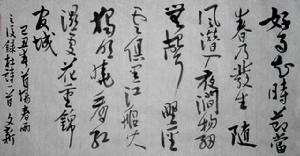 好雨知時節當
春乃發生隨
風潛入夜潤物細
無聲野徑
雲俱黑江船火
獨明曉看紅
濕處花重錦
官城
己丑年首場春雨
之後錄杜詩一首